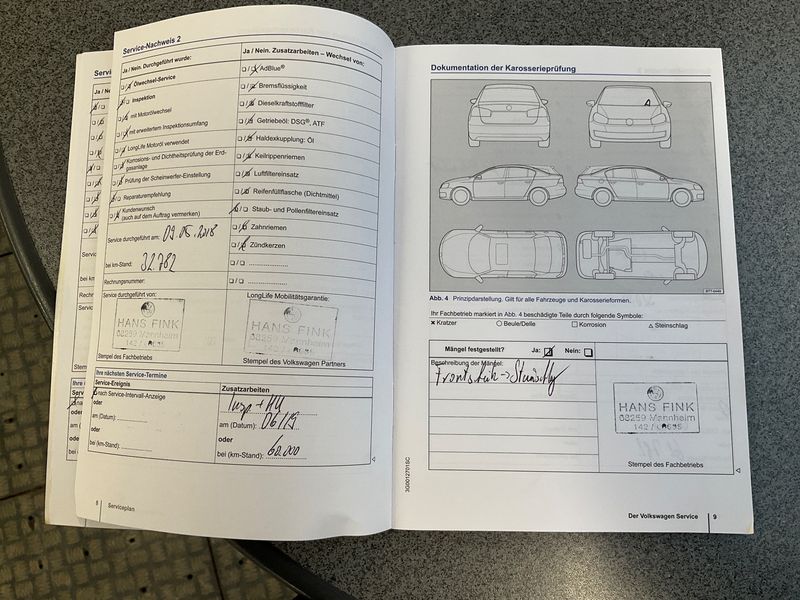 Servi
Ja / Ne
Servic
bei km
Rechn
Servic
Stem
Ihre
Serv
oder
am (
oder
bei (
Service-Nachweis 2
Ja / Nein. Durchgeführt wurde:
Ja / Nein. Zusatzarbeiten – Wechsel von:
Ölwechsel-Service
AdBlue®
Inspektion
Bremsflüssigkeit
mit Motorölwechsel
Dieselkraftstofffilter
mit erweitertem Inspektionsumfang
Getriebeöl: DSG®, ATF
LongLife Motoröl verwendet
Haldexkupplung: Öl
Korrosions- und Dichtheitsprüfung der Erd-
gasanlage
Keilrippenriemen
Prüfung der Scheinwerfer-Einstellung
Luftfiltereinsatz
Reparaturempfehlung
Reifenfüllflasche (Dichtmittel)
Kundenwunsch
(auch auf dem Auftrag vermerken)
Staub- und Pollenfiltereinsatz
Service durchgeführt am: 09.05.2018
Zahnriemen
Zündkerzen
bei km-Stand: 32.782
Rechnungsnummer:
Service durchgeführt von:
LongLife Mobilitätsgarantie:
HANS FINK
68259 Mannheim
HANS FINK
68259 Mannheim
Stempel des Fachbetriebs
Stempel des Volkswagen Partners
Ihre nächsten Service-Termine
Service-Ereignis
Zusatzarbeiten
nach Service-Intervall-Anzeige
Insp + HU
oder
am (Datum):
am (Datum): 06/19
oder
oder
bei (km-Stand):
bei (km-Stand): 60.000
8 Serviceplan
Dokumentation der Karosserieprüfung
Abb. 4 Prinzipdarstellung. Gilt für alle Fahrzeuge und Karosserieformen.
Ihr Fachbetrieb markiert in Abb. 4 beschädigte Teile durch folgende Symbole:
Kratzer Beule/Delle Korrosion Steinschlag
Mängel festgestellt? Ja: Nein:
Beschreibung der Mängel:
HANS FINK
68259 Mannheim
Stempel des Fachbetriebs
3G0012701SC
Der Volkswagen Service 9